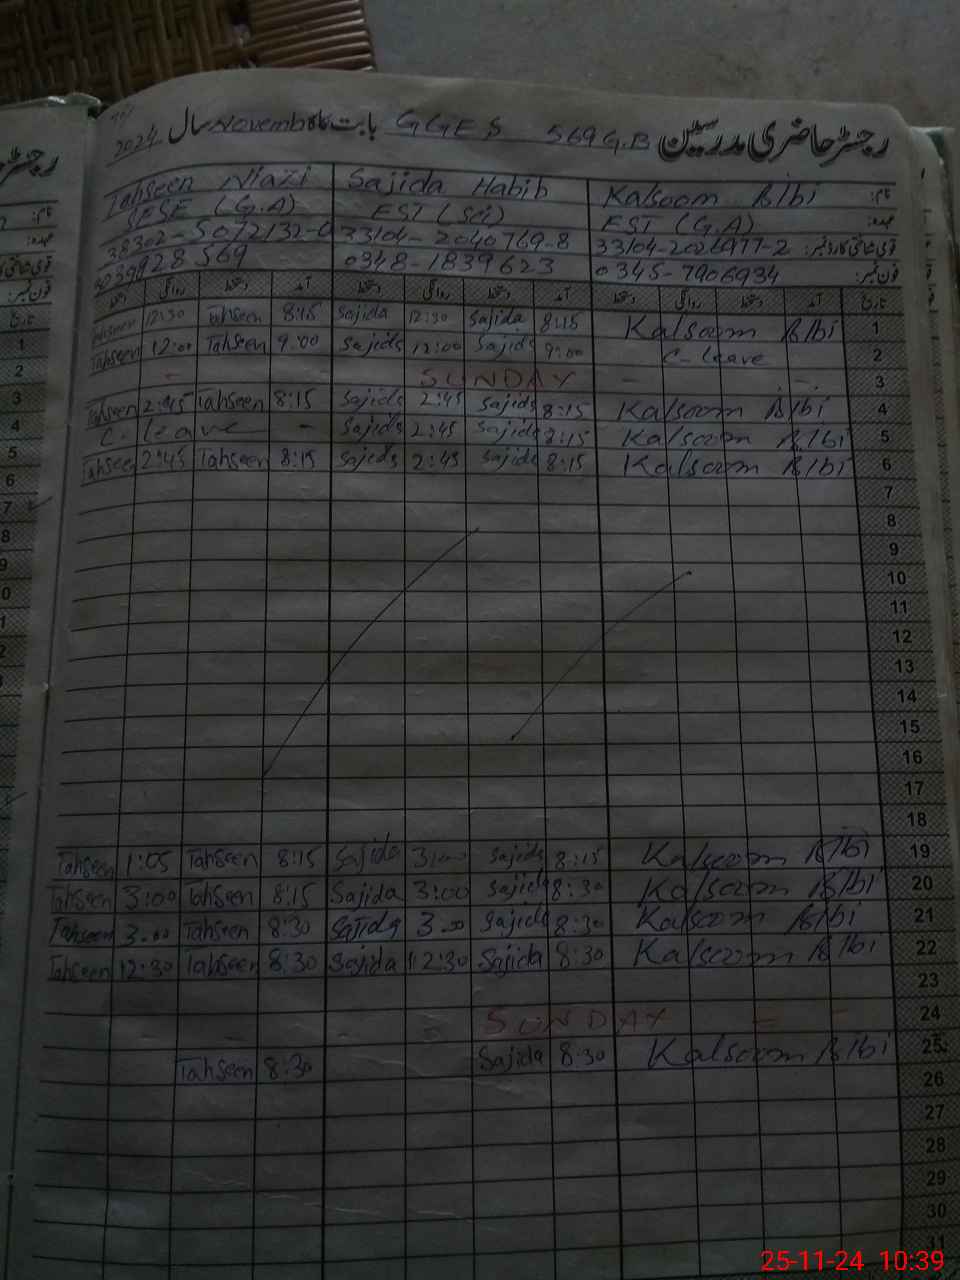 رجسٹر حاضری مدرسین GGES 569 G.B بابت ماہ November سال 2024
نام: Kalsoom BIbi Sajida Habib Tahseen Niazi
عہدہ: EST (G.A) EST (Sci) SESE (G.A)
قومی شناختی کارڈ نمبر: 33104-2026977-2 33104-2040769-8 38302-5072132-0
فون نمبر: 0345-7906934 0348-1839623
تاریخ آمد دستخط روانگی دستخط آمد دستخط روانگی دستخط آمد دستخط روانگی دستخط
1 Kalsoom BIbi 8:15 Sajida 12:30 Sajida 8:15 Tahseen 12:30 Tahseen
2 C-leave 9:00 Sajida 12:00 Sajida 9:00 Tahseen 12:00 Tahseen
3 - - SUNDAY -
4 Kalsoom BIbi 8:15 Sajida 2:45 Sajida 8:15 Tahseen 2:45 Tahseen
5 Kalsoom BIbi 8:15 Sajida 2:45 Sajida - C. leave
6 Kalsoom BIbi 8:15 Sajida 2:45 Sajida 8:15 Tahseen 2:45 Tahseen
7
8
9
10
11
12
13
14
15
16
17
18
19 Kalsoom BIbi 8:15 Sajida 3:00 Sajida 8:15 Tahseen 1:05 Tahseen
20 Kalsoom BIbi 8:30 Sajida 3:00 Sajida 8:15 Tahseen 3:00 Tahseen
21 Kalsoom BIbi 8:30 Sajida 3.00 Sajida 8:30 Tahseen 3.00 Tahseen
22 Kalsoom BIbi 8:30 Sajida 12:30 Sajida 8:30 Tahseen 12:30 Tahseen
23
24 - - SUNDAY
25 Kalsoom BIbi 8:30 Sajida 8:30 Tahseen
26
27
28
29
30
31
25-11-24 10:39